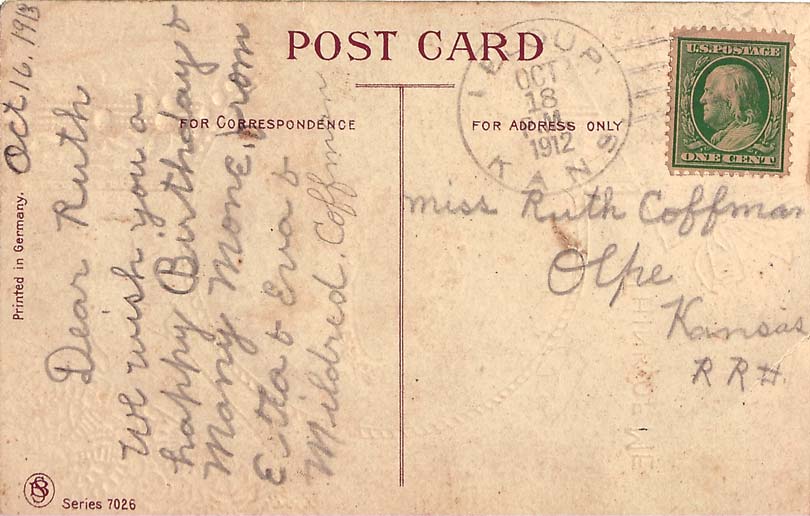 POST CARD
FOR CORRESPONDENCE
FOR ADDRESS ONLY
Oct 16, 191
Dear Ruth
We wish you a
happy Birthday &
Many More, from
Etta & Eva &
Mildred. Coffman
OCT
18
1912
KANS
U.S. POSTAGE
ONE CENT
Miss Ruth Coffman
Olpe
Kansas
RR
Printed in Germany.
Series 7026